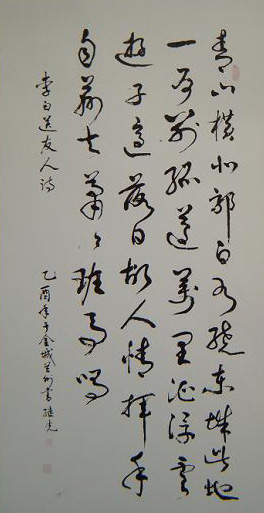 青山橫北郭白水繞東城此地
一為別孤蓬萬里征浮雲
遊子意落日故人情揮手
自茲去蕭々班馬鳴
李白送友人詩
乙酉年于金城蘭州書繼光